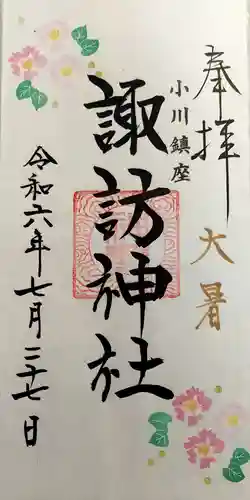 奉拝
大暑
小川鎮座
諏訪神社
令和六年七月二十七日